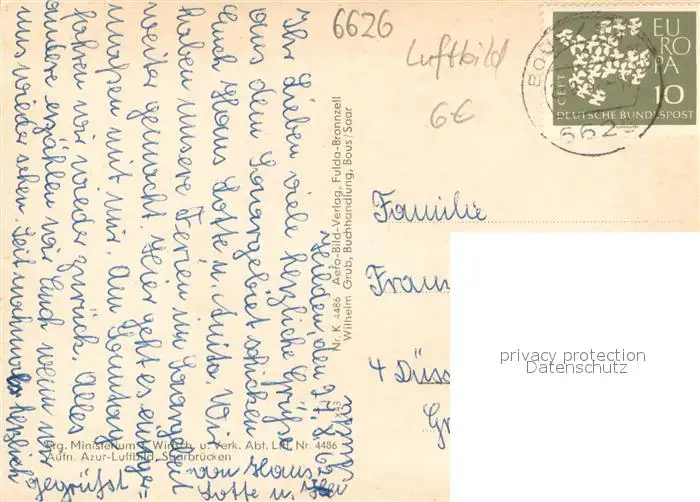 6626
Luftbild
6€
EUROPA
CEPT
10
DEUTSCHE BUNDESPOST
BOUS
662
Ihr Lieben viele herzliche Grüße
aus dem Saargebiet schicken
Euch Hans Lotte u. Anita. Wir
haben unsere Ferien im Saargebiet
weiter gemacht. Hier geht es einiger=
maßen mit mir. Am Sonntag
fahren wir wieder zurück. Alles
andere erzählen wir Euch wenn wir
uns wieder sehen. Seit nochmals herzlich
gegrüßt von Hans
Lotte u.
Nr. K 4486 Aero-Bild-Verlag, Fulda-Bronnzell
Wilhelm Grub, Buchhandlung, Bous/Saar
Familie
4 Düss
Gr
privacy protection
Datenschutz
Ministerium f. Wirtsch. u. Verk. Abt. Luft. Nr. 4486
Aufn. Azur-Luftbild, Saarbrücken